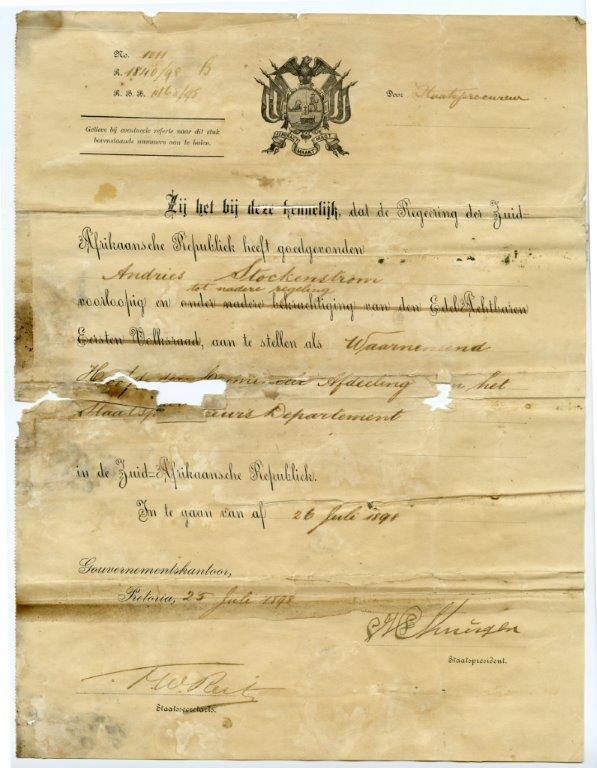 No. 1011
R. 1840/98 B
R. B. B. 1160/98
Door Staatsprocureur
EENDRAGT MAAKT MAGT
Gelieve bij eventueele referte naar dit stuk
bovenstaande nummers aan te halen.
Zij het bij deze kennelijk, dat de Regeering der Zuid-
Afrikaansche Republiek heeft goedgevonden
Andries Stockenstrom
tot nadere regeling
voorloopig en onder nadere bekrachtiging van den Edel Achtbaren
Eersten Volksraad, aan te stellen als Waarnemend
Afdeeling het
Departement
in de Zuid-Afrikaansche Republiek.
In te gaan van af 26 Juli 1898
Gouvernementskantoor,
Pretoria, 25 Juli 1898
Staatspresident.
F.W. Reitz
Staatssecretaris.